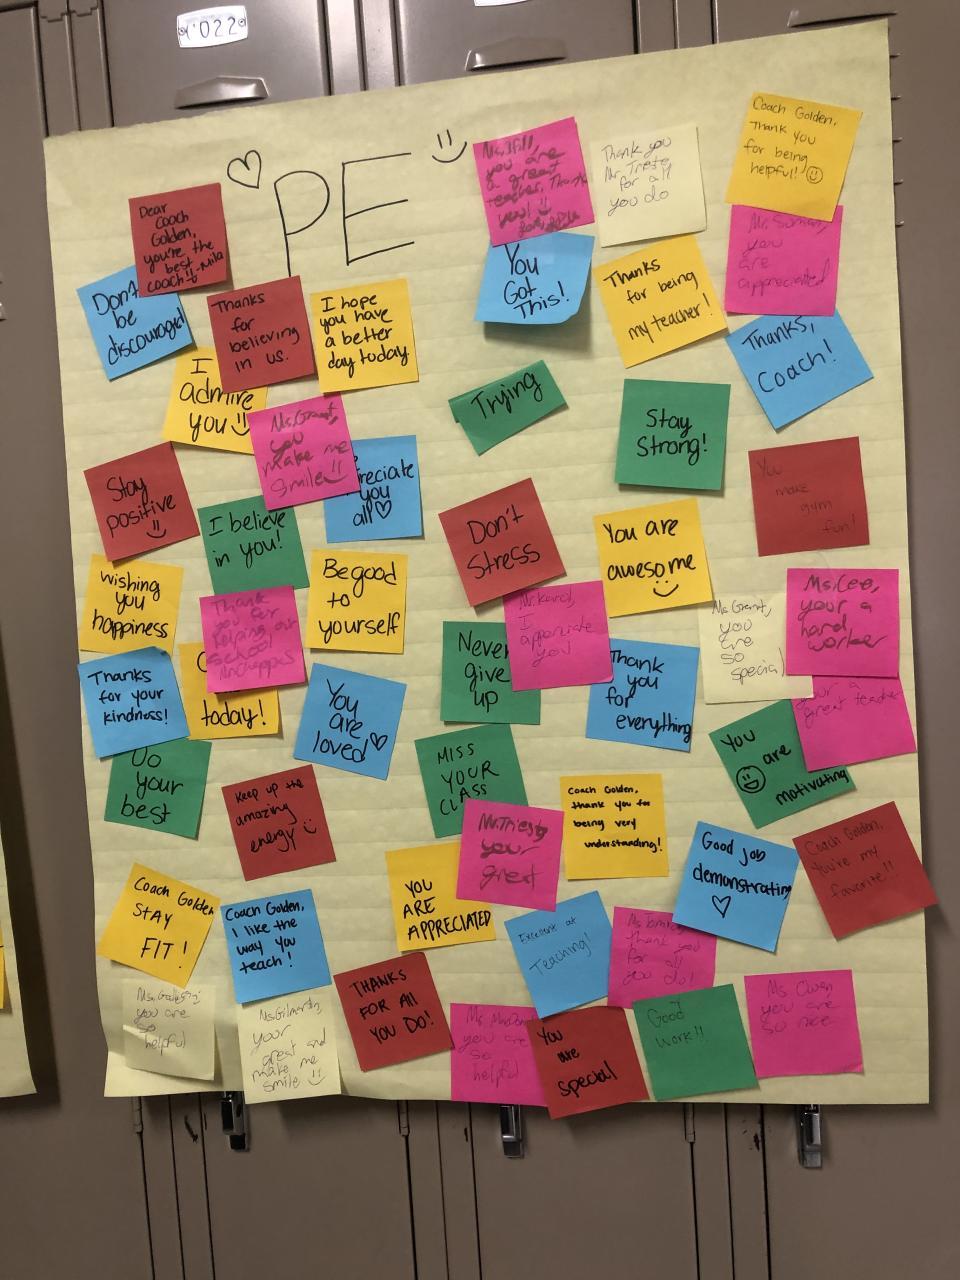 1022
PE
Dear
Coach
Golden,
you're the
best
coach!! -Mila
Don't
be
discouraged
Thanks
for
believing
in us.
I hope
you have
a better
day today.
I
admire
you
Ms. Grant,
you
make me
smile!!
preciate
you
all
Stay
positive
I believe
in you!
wishing
you
happiness
Thank
you for
helping our
school
Be good
to
yourself
Thanks
for your
kindness!
today!
You
are
loved
Do
your
best
Keep up the
amazing
energy
Coach Golden
STAY
FIT!
Coach Golden,
I like the
way you
teach!
you are
so
helpful
your
great and
make me
smile
THANKS
FOR All
YOU DO!
you are
a great
teacher. Thank
you!
Thank you
for all
you do
Coach Golden,
Thank you
for being
helpful!
You
Got
This!
Thanks
for being
my teacher!
you
are
appreciated
Thanks,
Coach!
Trying
Stay
Strong!
You
make
gym
fun!
Don't
Stress
You are
awesome
I
appreciate
you
Ms Grant,
you
are
so
special
Ms. Lee,
your a
hard
worker
Never
give
up
Thank
you
for
everything
your a
great teacher
You
are
motivating
MISS
YOUR
CLASS
your
great
Coach Golden,
thank you for
being very
understanding!
Good job
demonstrating
Coach Golden,
You're my
favorite!!
YOU
ARE
APPRECIATED
Excellent at
Teaching!
thank you
for all
you do!
you are
so
helpful
You
are
special
Good
work!!
Ms. Owen
you are
so nice